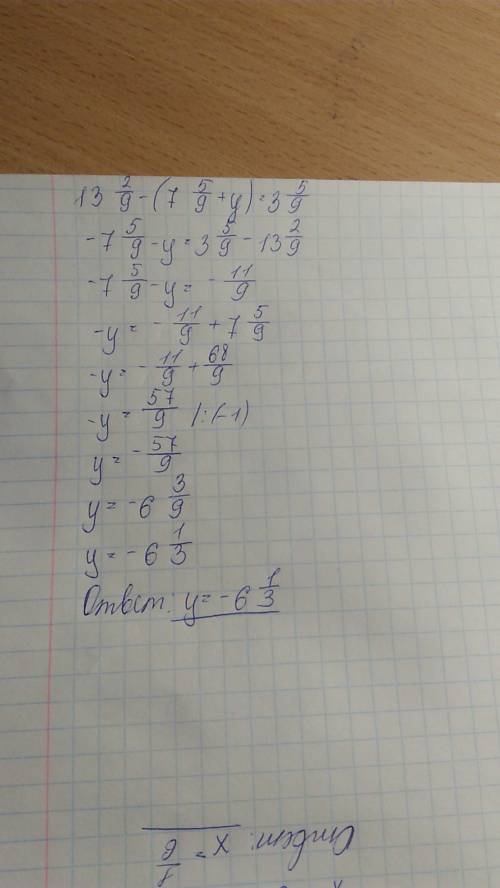 13 2/9 - (7 5/9 + y) = 3 5/9
-7 5/9 - y = 3 5/9 - 13 2/9
-7 5/9 - y = - 11/9
-y = - 11/9 + 7 5/9
-y = - 11/9 + 68/9
-y = 57/9 /:(-1)
y = - 57/9
y = -6 3/9
y = -6 1/3
Ответ: y = -6 1/3
Ответ: x =